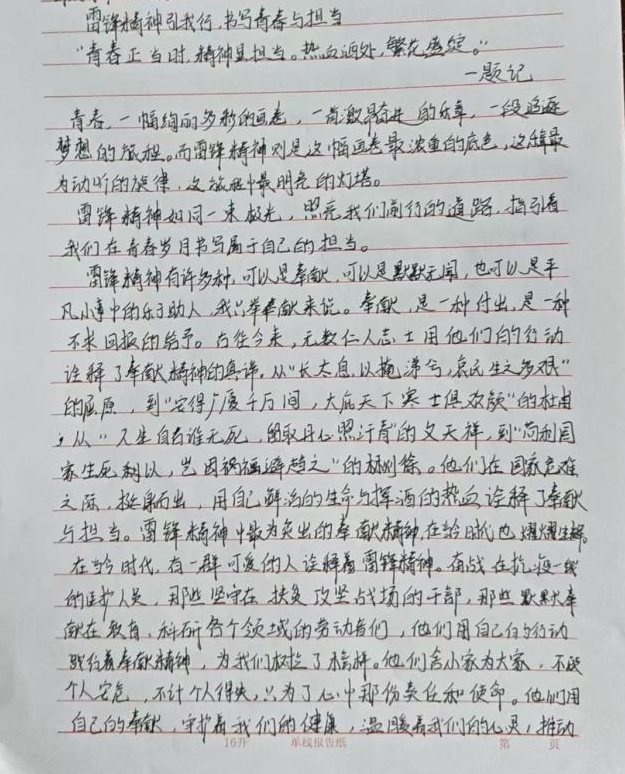 雷锋精神引我行，书写青春与担当
“青春正当时，精神显担当。热血洒处，繁花盛绽。”
—题记
青春，一幅绚丽多彩的画卷，一首激昂奋进的乐章，一段追逐
梦想的旅程。而雷锋精神则是这幅画卷最浓重的底色，这乐章最
为动听的旋律，这旅程中最明亮的灯塔。
雷锋精神如同一束极光，照亮我们前行的道路，指引着
我们在青春岁月书写属于自己的担当。
雷锋精神有许多种，可以是奉献，可以是默默无闻，也可以是平
凡小事中的乐于助人，我只举奉献来说。奉献，是一种付出，是一种
不求回报的给予。古往今来，无数仁人志士用他们的行动
诠释了奉献精神的真谛，从“长太息以掩涕兮，哀民生之多艰”
的屈原，到“安得广厦千万间，大庇天下寒士俱欢颜”的杜甫
，从“人生自古谁无死，留取丹心照汗青”的文天祥，到“苟利国
家生死利以，岂因祸福避趋之”的林则徐。他们在国家危难
之际，挺身而出，用自己鲜活的生命与挥洒的热血诠释了奉献
与担当。雷锋精神中最为突出的奉献精神，在当今时代也熠熠生辉。
在当今时代，有一群可爱的人诠释着雷锋精神。奋战在抗疫一线
的医护人员，那些坚守在扶贫攻坚战场的干部，那些默默奉
献在教育、科研各个领域的劳动者们，他们用自己的行动
践行着奉献精神，为我们树立了榜样。他们舍小家为大家，不顾
个人安危，不计个人得失，只为了心中那份责任和使命。他们用
自己的奉献，守护着我们的健康，温暖着我们的心灵，推动
16开 单线报告纸 第 页